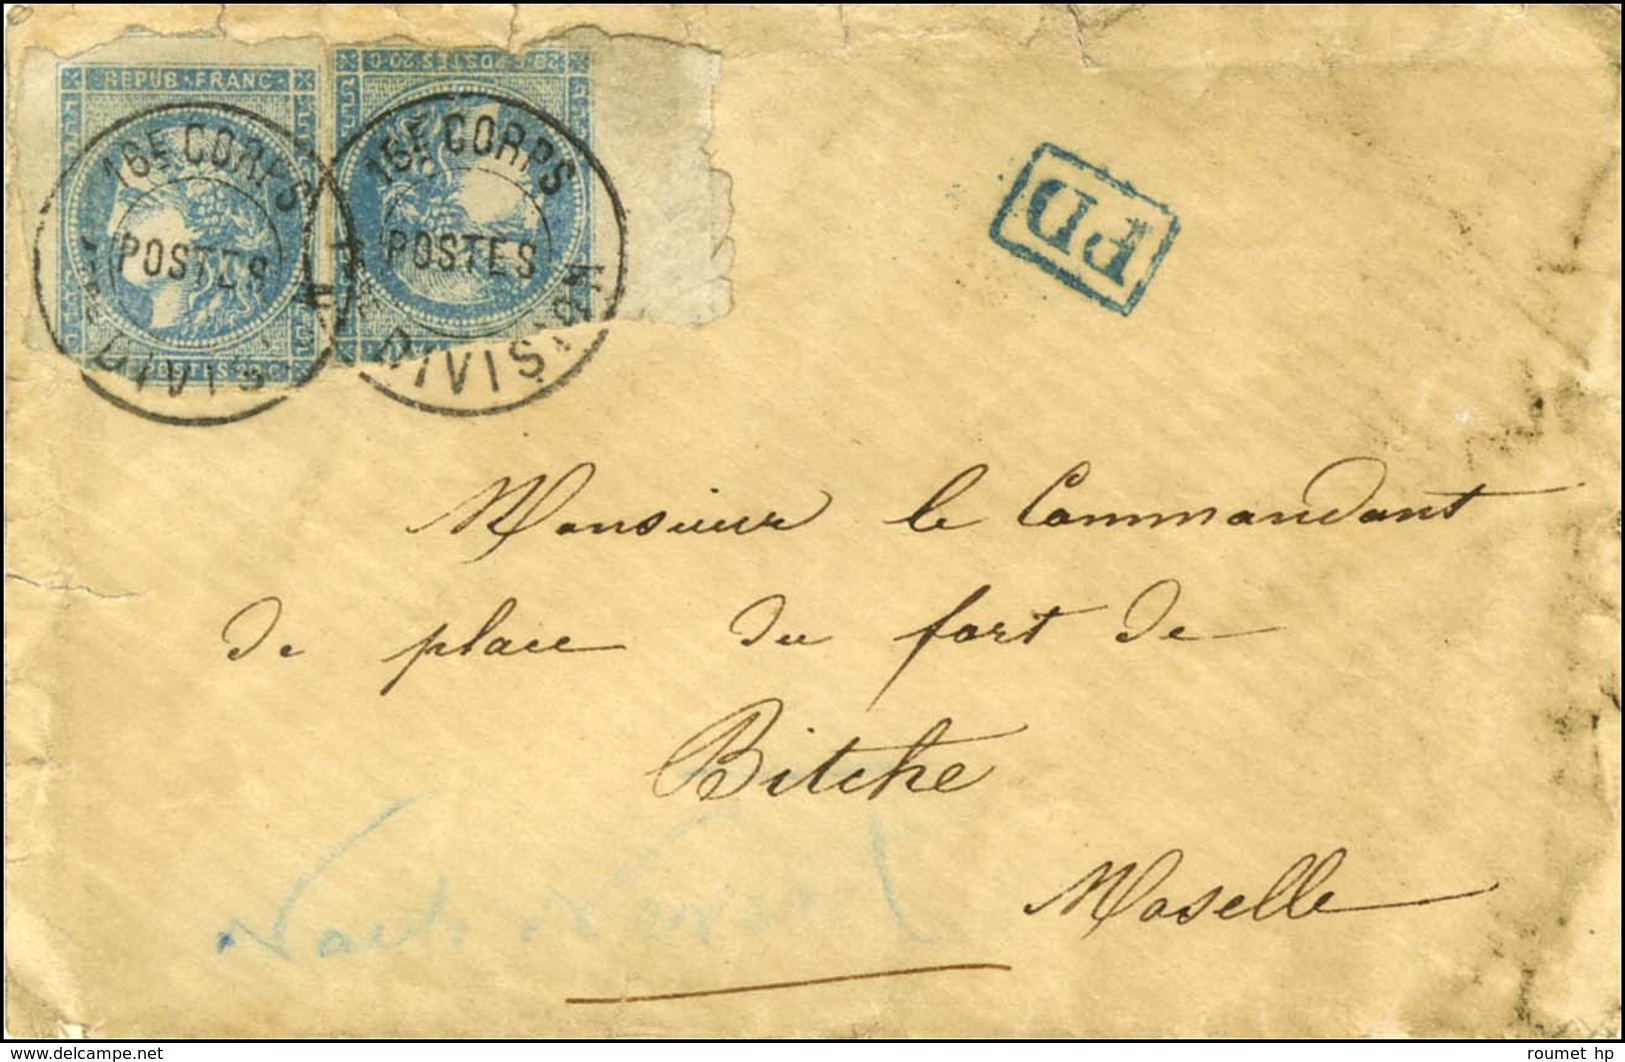 REPUB·FRANC
POSTES 20 C
20 C POSTES 20 C
16E CORPS
POSTES
DIVIS
16E CORPS
POSTES
DIVISION
PD
Monsieur le Commandant
de place du fort de
Bitche
Moselle
www.delcampe.net
roumet hp